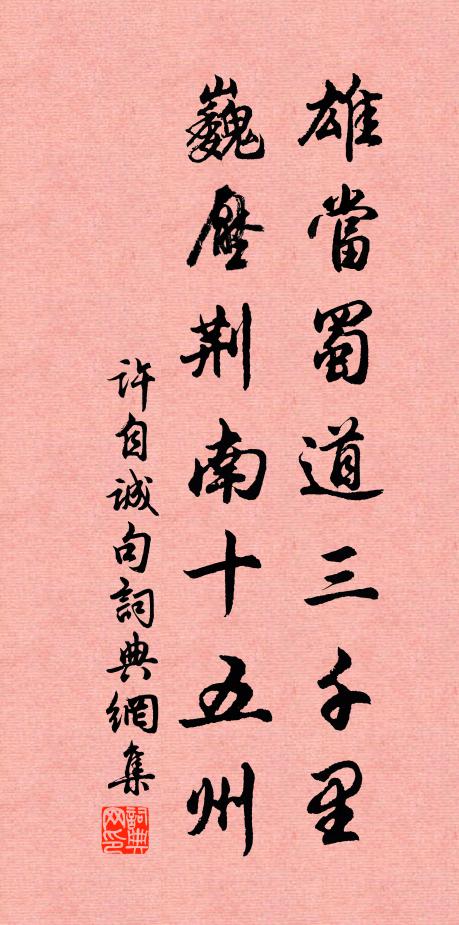 雄當蜀道三千里
巍壓荆南十五州
許自誠句詞典網集
詞典网印